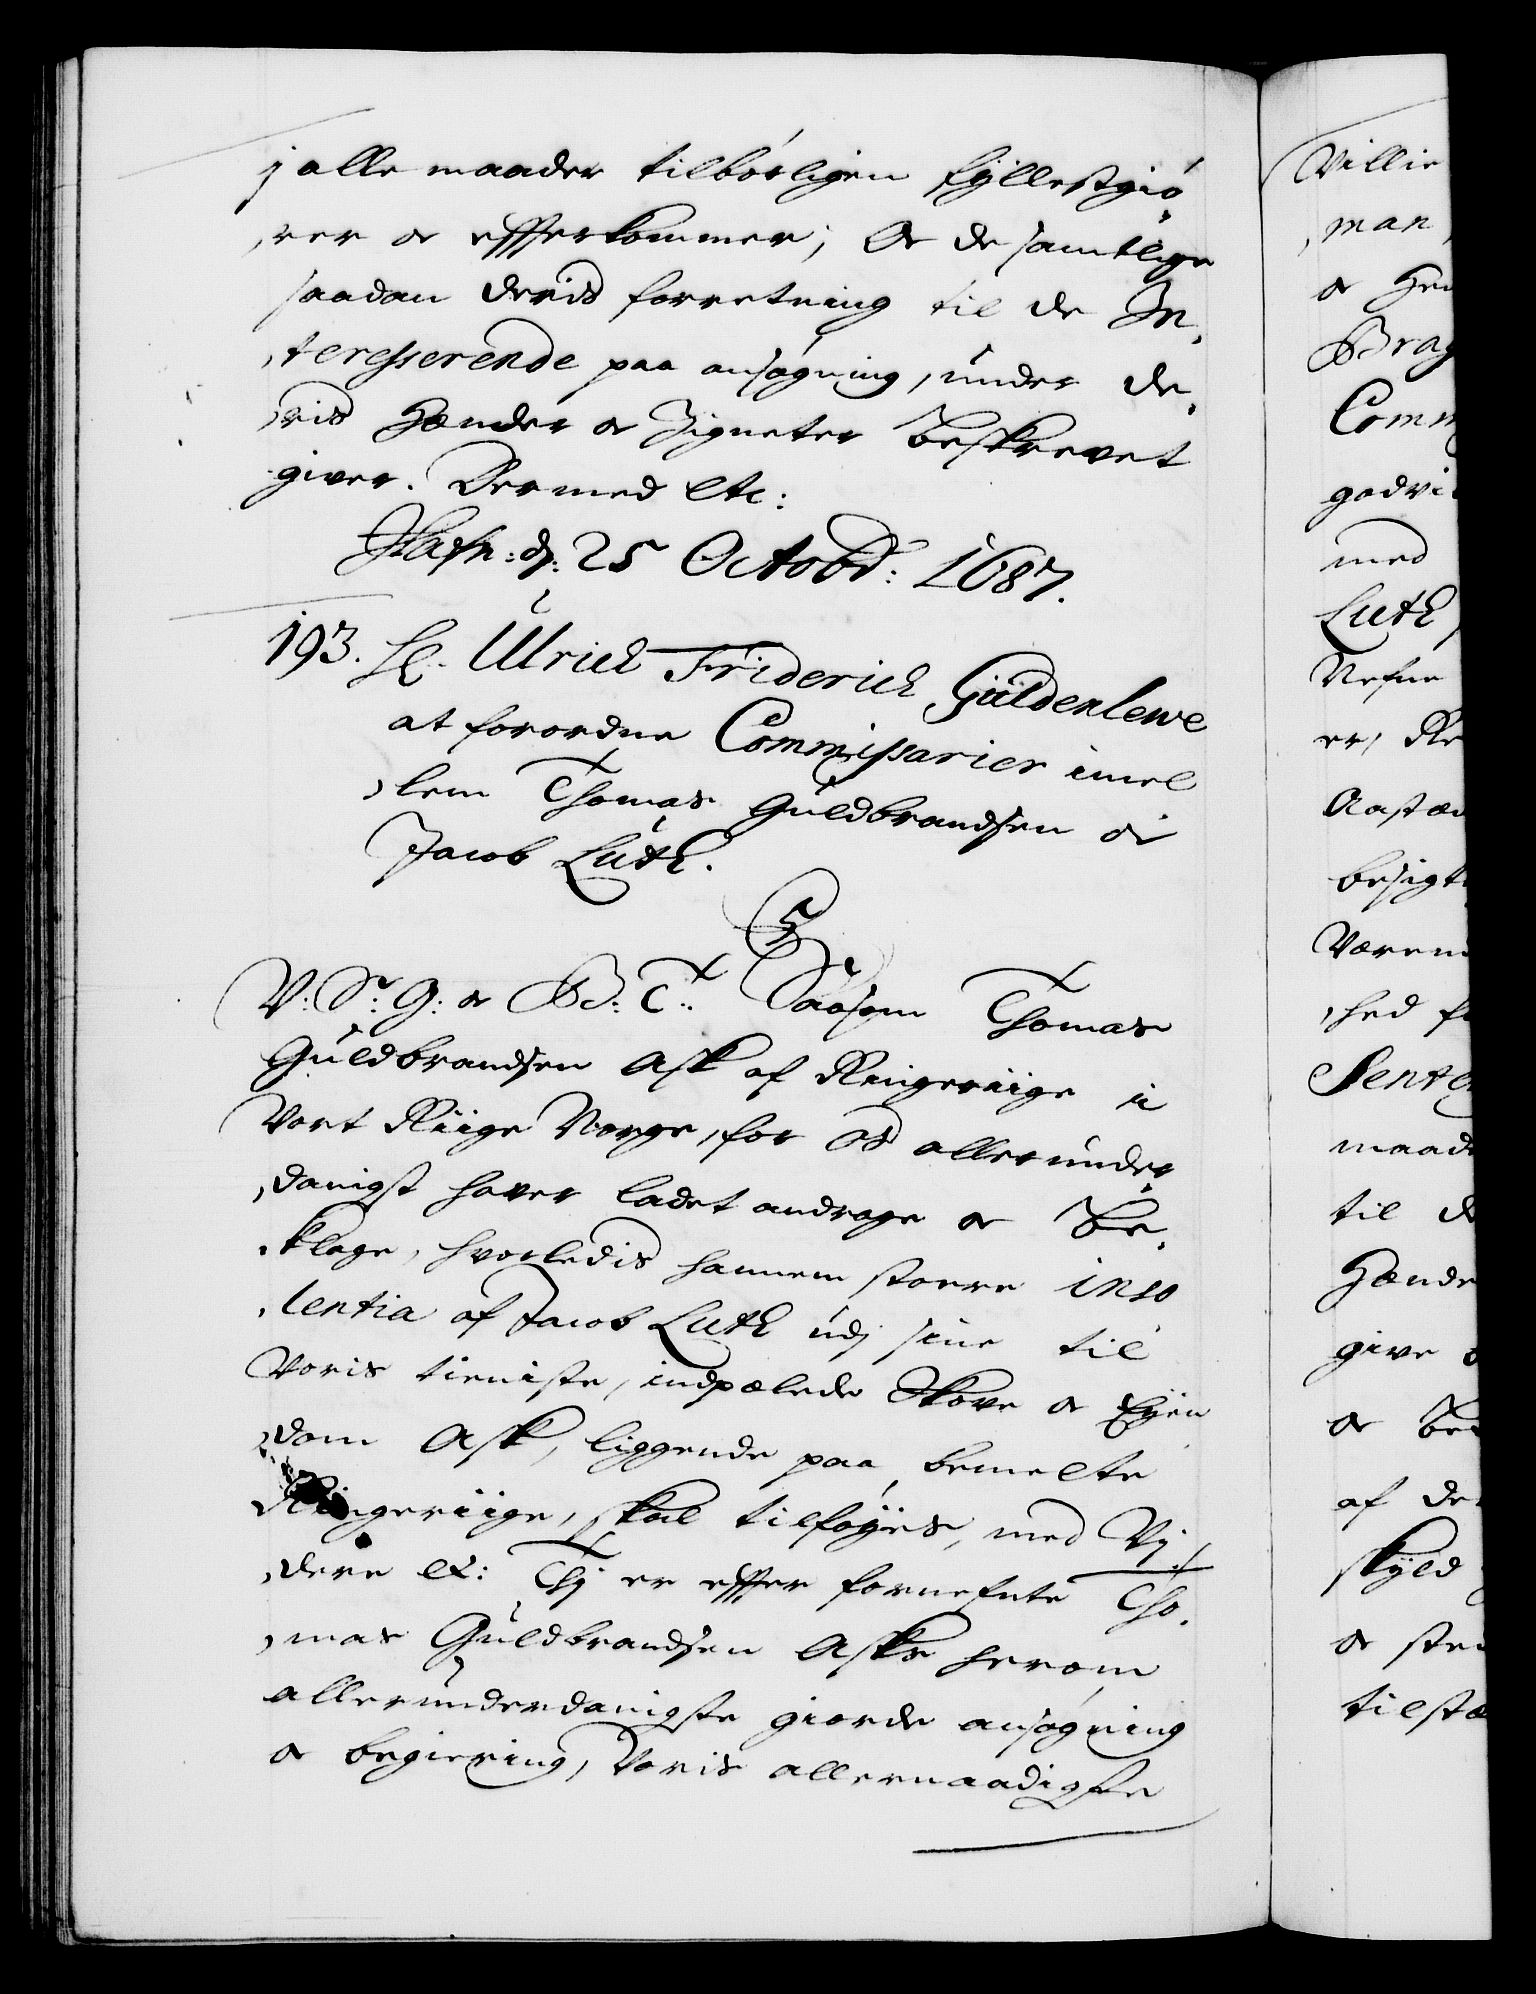 j alle maader tilbörligen fyllestgiö,
,rer og efferkommer; Og de samtlige
saadan deris forretning til de In,
,teresserende paa ansögning, under de,
,ris Hænder og Zigneter beskrevet
giver. Dermed etc:
Hafn: d: 25 Octobr: 1687.
193. Hl. Ulrich Friderich Güldenlewe
at forordne Commissarier imel
,lem Thomas Guldbrandsen og
Jacob Luth.
C5
V: Sr: G: og B: T: Saasom Thomas
Guldbrandsen Ask af Ringeriige ji
Vort Riige Norge, for Os allerunder,
,danigst haver ladet andrage og be,
,klage, hvorledis hannem storre inso
,lentia af Jacob Luth udj sine til
Voris tieniste, indpælede Skove og Eyen
,dom Ask, liggende paa bemelte
Ringeriige, skal tilföyes, med Vj,
,dere etc: Thj er effter fornefnte Tho,
,mas Guldbrandsen Aske herom
allerunderdanigste giorde ansögning
og begiering, Voris allernaadigste
Villie
,man,
og Hen
Brag
Comm
godvi
med
Luth,
Nefne
er, Re
Aastæ
besigt
Væren
,hed f
Senten
maad
til d
Hænde
give o
og be
af de
skyld
og sted
tilstæ